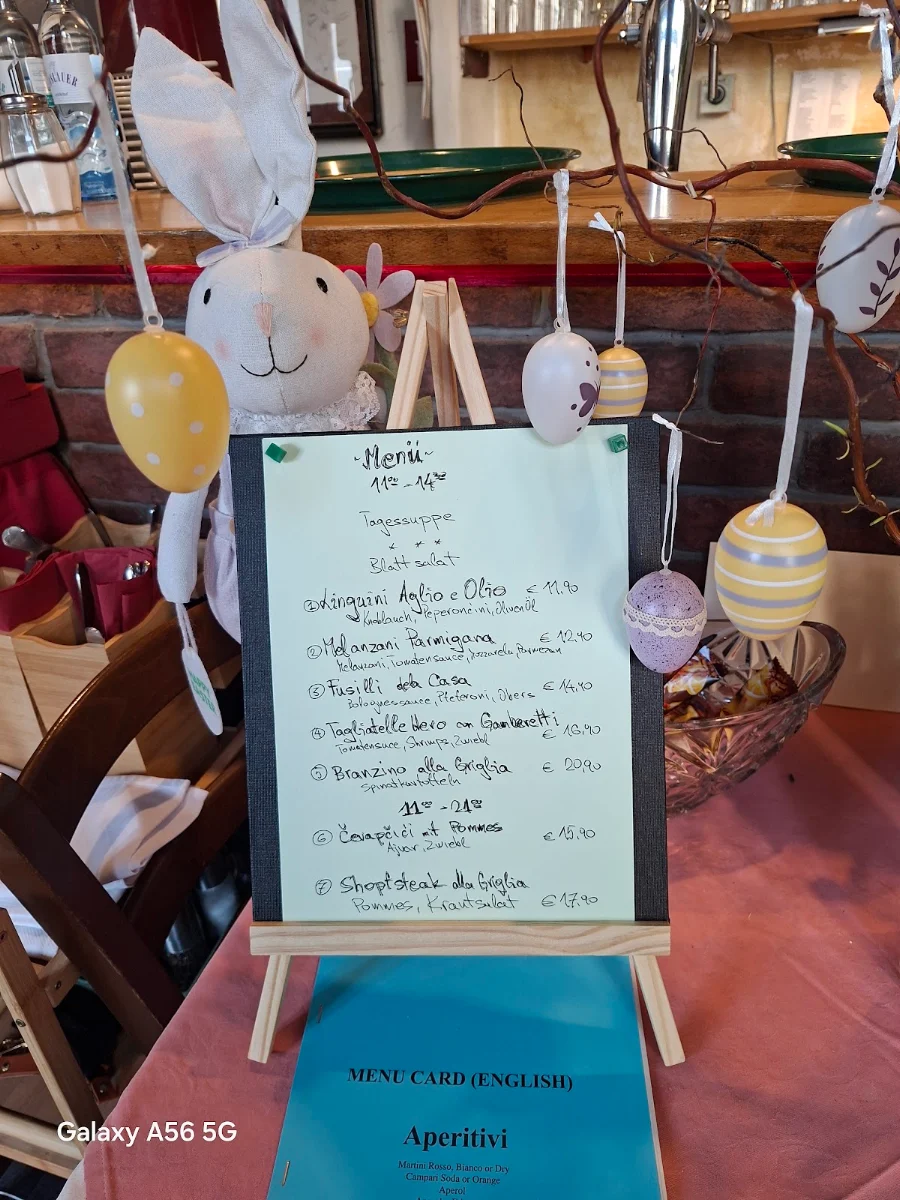 -Menü-
11⁰⁰ - 14³⁰
Tagessuppe
* * *
Blattsalat
① Linguini Aglio e Olio € 11,90
Knoblauch, Peperoncini, OlivenÖl
② Melanzani Parmigana € 12,90
Melanzani, Tomatensauce, Mozzarela, Parmesan
③ Fusilli dela Casa
Bolognessauce, Pfeferoni, Obers € 14,90
④ Tagliatelle Nero con Gamberetti
Tomatensuce, Shrimps, Zwiebl € 16,90
⑤ Branzino alla Griglia € 20,90
Spinatkartoffeln
11⁰⁰ - 21⁰⁰
⑥ Čevapčići mit Pommes € 15,90
Ajvar, Zwiebl
⑦ Shopfsteak alla Griglia
Pommes, Krautsalat € 17,90
MENU CARD (ENGLISH)
Aperitivi
Martini Rosso, Bianco or Dry
Campari Soda or Orange
Aperol
Galaxy A56 5G